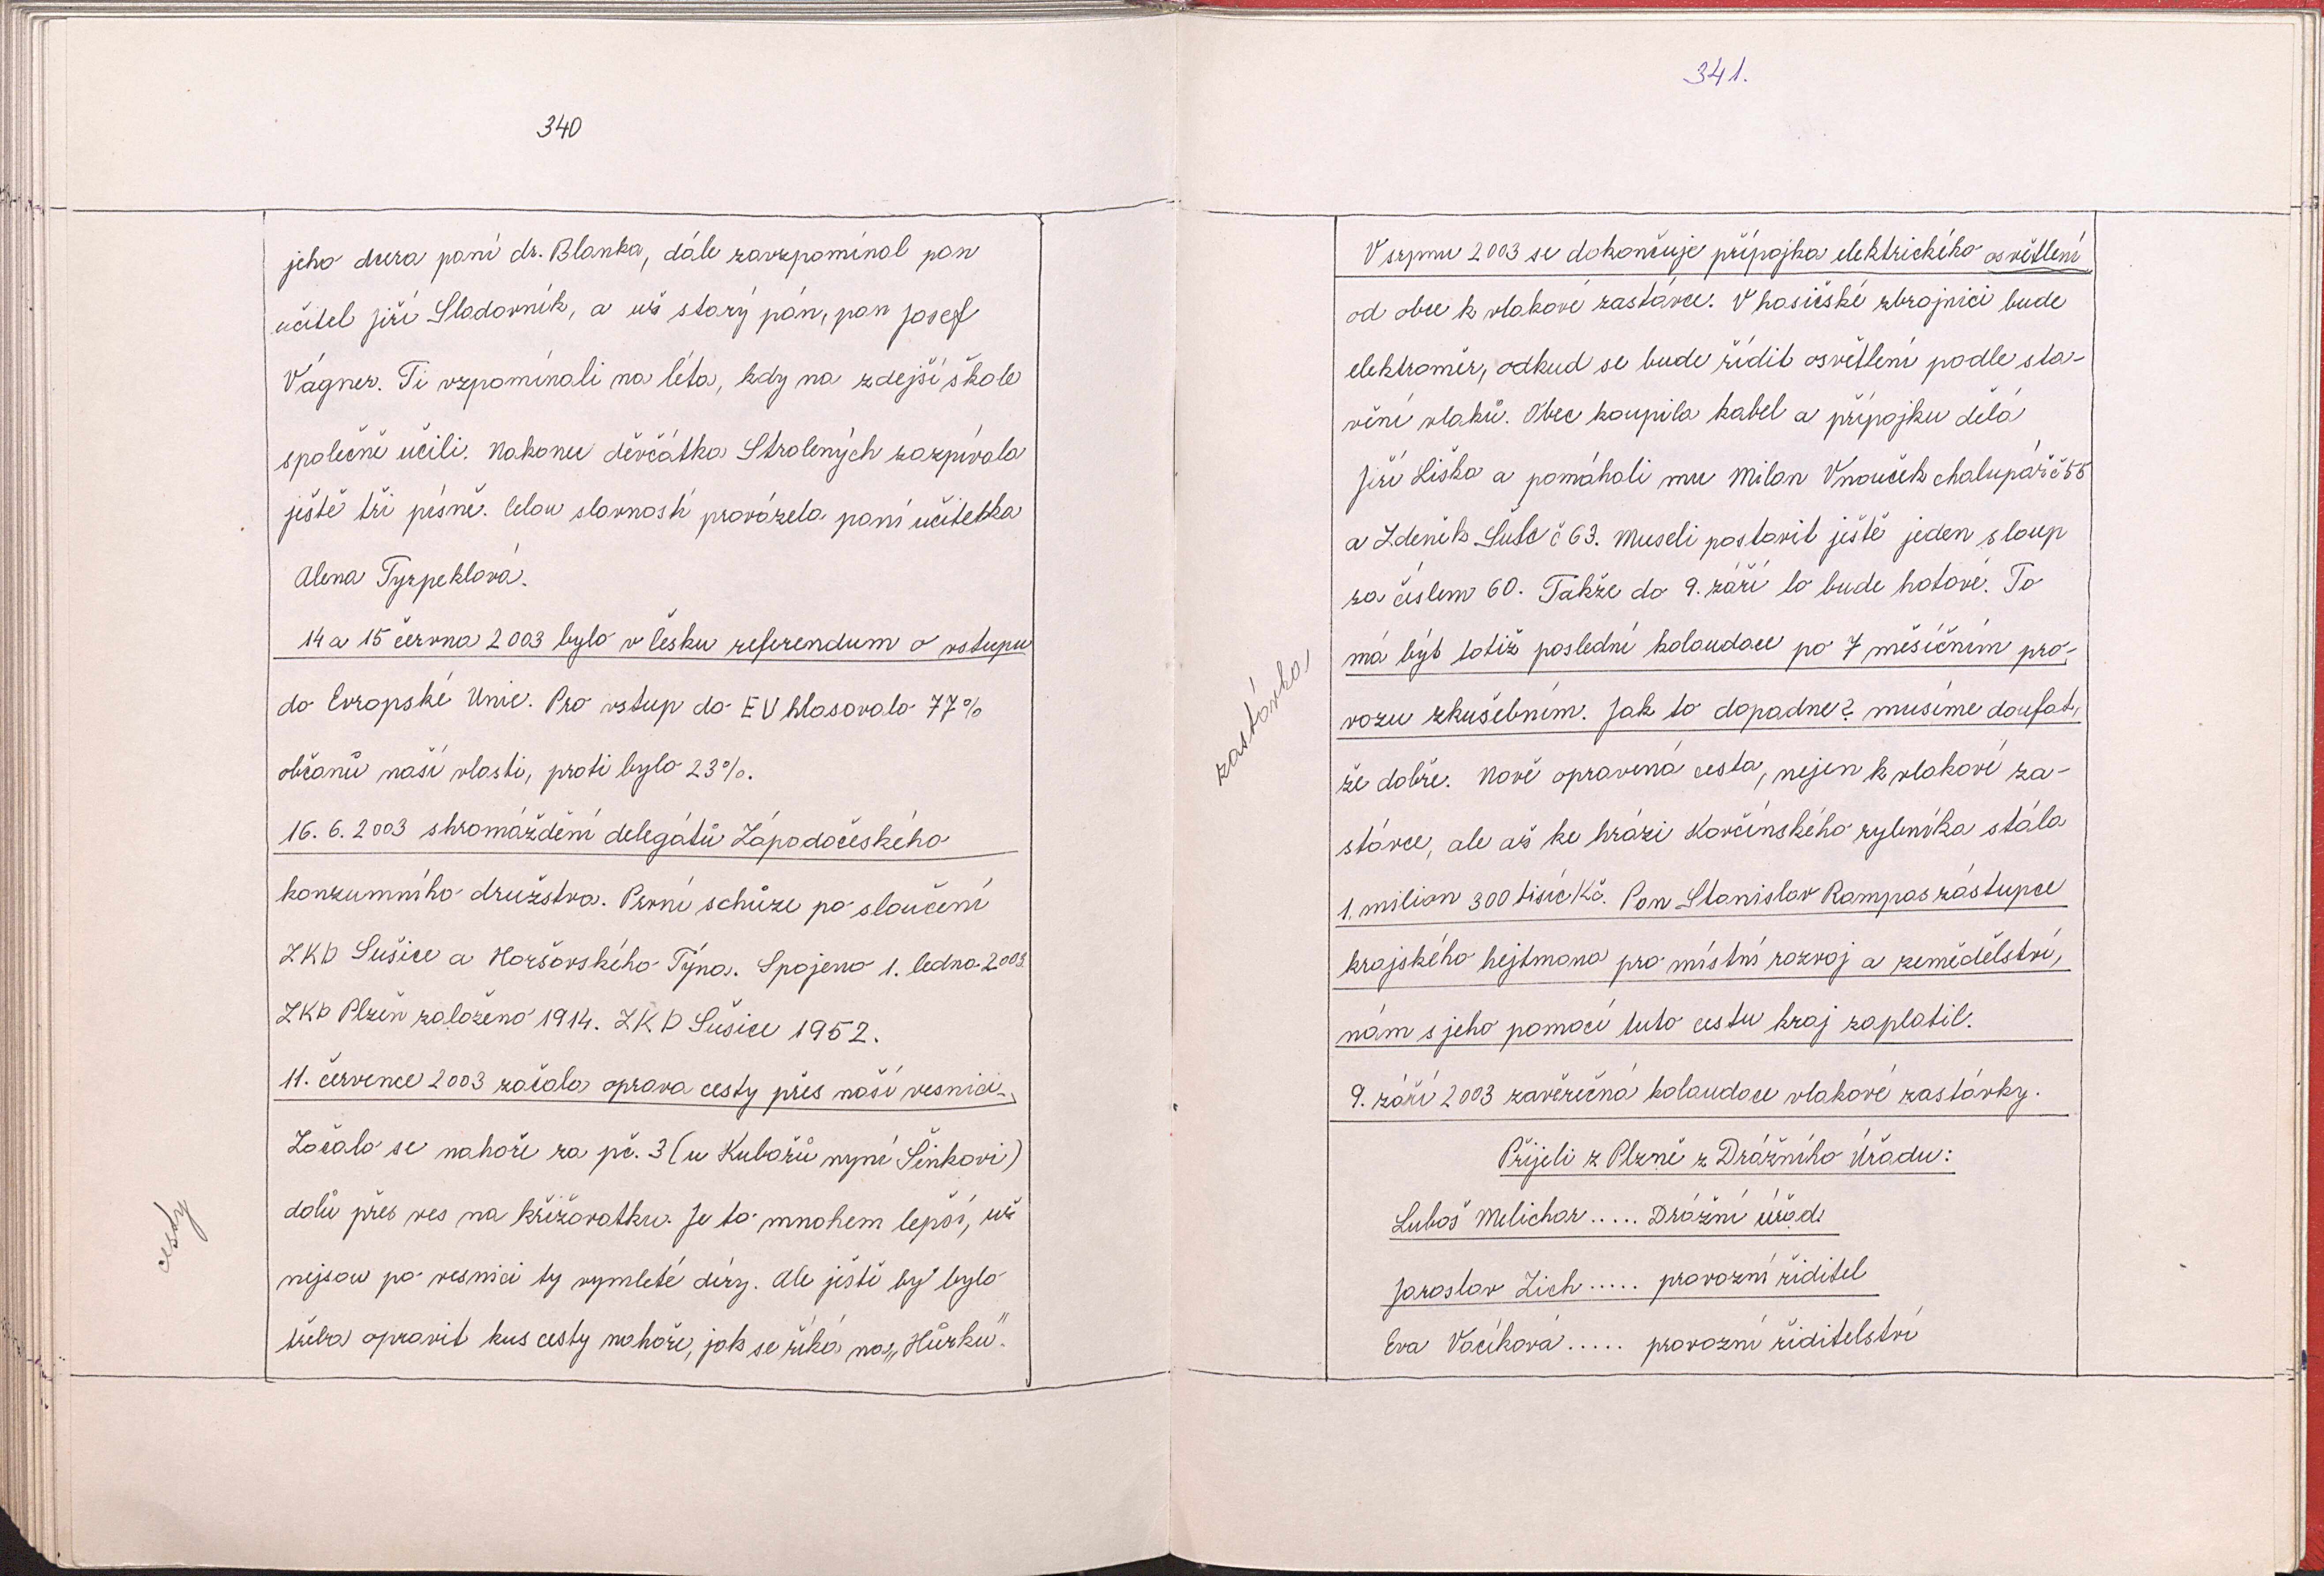 340
jeho dcera paní dr. Blanka, dále zavzpomínal pan
učitel Jiří Sladovník, a už starý pán, pan Josef
Vágner. Ti vzpomínali na léta, kdy na zdejší škole
společně učili. Nakonec děvčátka Stralených zazpívala
ještě tři písně. Celou slavností provázela paní učitelka
Alena Tyrpeklová.
14 a 15 června 2003 bylo v Česku referendum o vstupu
do Evropské Unie. Pro vstup do EU hlasovalo 77%
občanů naší vlasti, proti bylo 23%.
16. 6. 2003 shromáždění delegátů Západočeského
konzumního družstva. První schůze po sloučení
ZKD Sušice a Horšovského Týna. Spojeno 1. ledna 2003.
ZKD Plzeň založeno 1914. ZKD Sušice 1952.
11. července 2003 začala oprava cesty přes naší vesnici.
Začalo se nahoře za pč. 3 (u Kubařů nyní Šinkovi)
dolů přes ves na křižovatku. Je to mnohem lepší, už
nejsou po vesnici ty vymleté díry. Ale ještě by bylo
třeba opravit kus cesty nahoře, jak se říká na „Hůrku".
cesty
341.
V srpnu 2003 se dokončuje přípojka elektrického osvětlení
od obce k vlakové zastávce. V hasičské zbrojnici bude
elektroměr, odkud se bude řídit osvětlení podle sta-
vění vlaků. Obec koupila kabel a přípojku dělá
Jiří Liška a pomáhali mu Milan Vnouček chalupář č 55
a Zdeněk Šulc č 63. Museli postavit ještě jeden sloup
za číslem 60. Takže do 9. září to bude hotové. To
má být totiž poslední kolaudace po 7 měsíčním pro-
vozu zkušebním. Jak to dopadne? musíme doufat,
že dobře. Nově opravená cesta, nejen k vlakové za-
stávce, ale až ke hrázi Korčínského rybníka stála
1. milion 300 tisíc Kč. Pan Stanislav Rampas zástupce
krajského hejtmana pro místní rozvoj a zemědělství,
nám s jeho pomocí tuto cestu kraj zaplatil.
9. září 2003 závěrečná kolaudace vlakové zastávky.
Přijeli z Plzně z Drážního Úřadu:
Luboš Melichar ..... Drážní úřad
Jaroslav Zich ..... provozní ředitel
Eva Vacíková ..... provozní ředitelství
zastávka